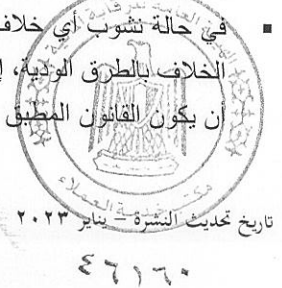 ▪ في حالة نشوب أي خلاف
الخلاف بالطرق الودية، إ
أن يكون القانون المطبق
مكتب خدمة العملاء
تاريخ تحديث النشرة – يناير ٢٠٢٣
٤٦١٦٠